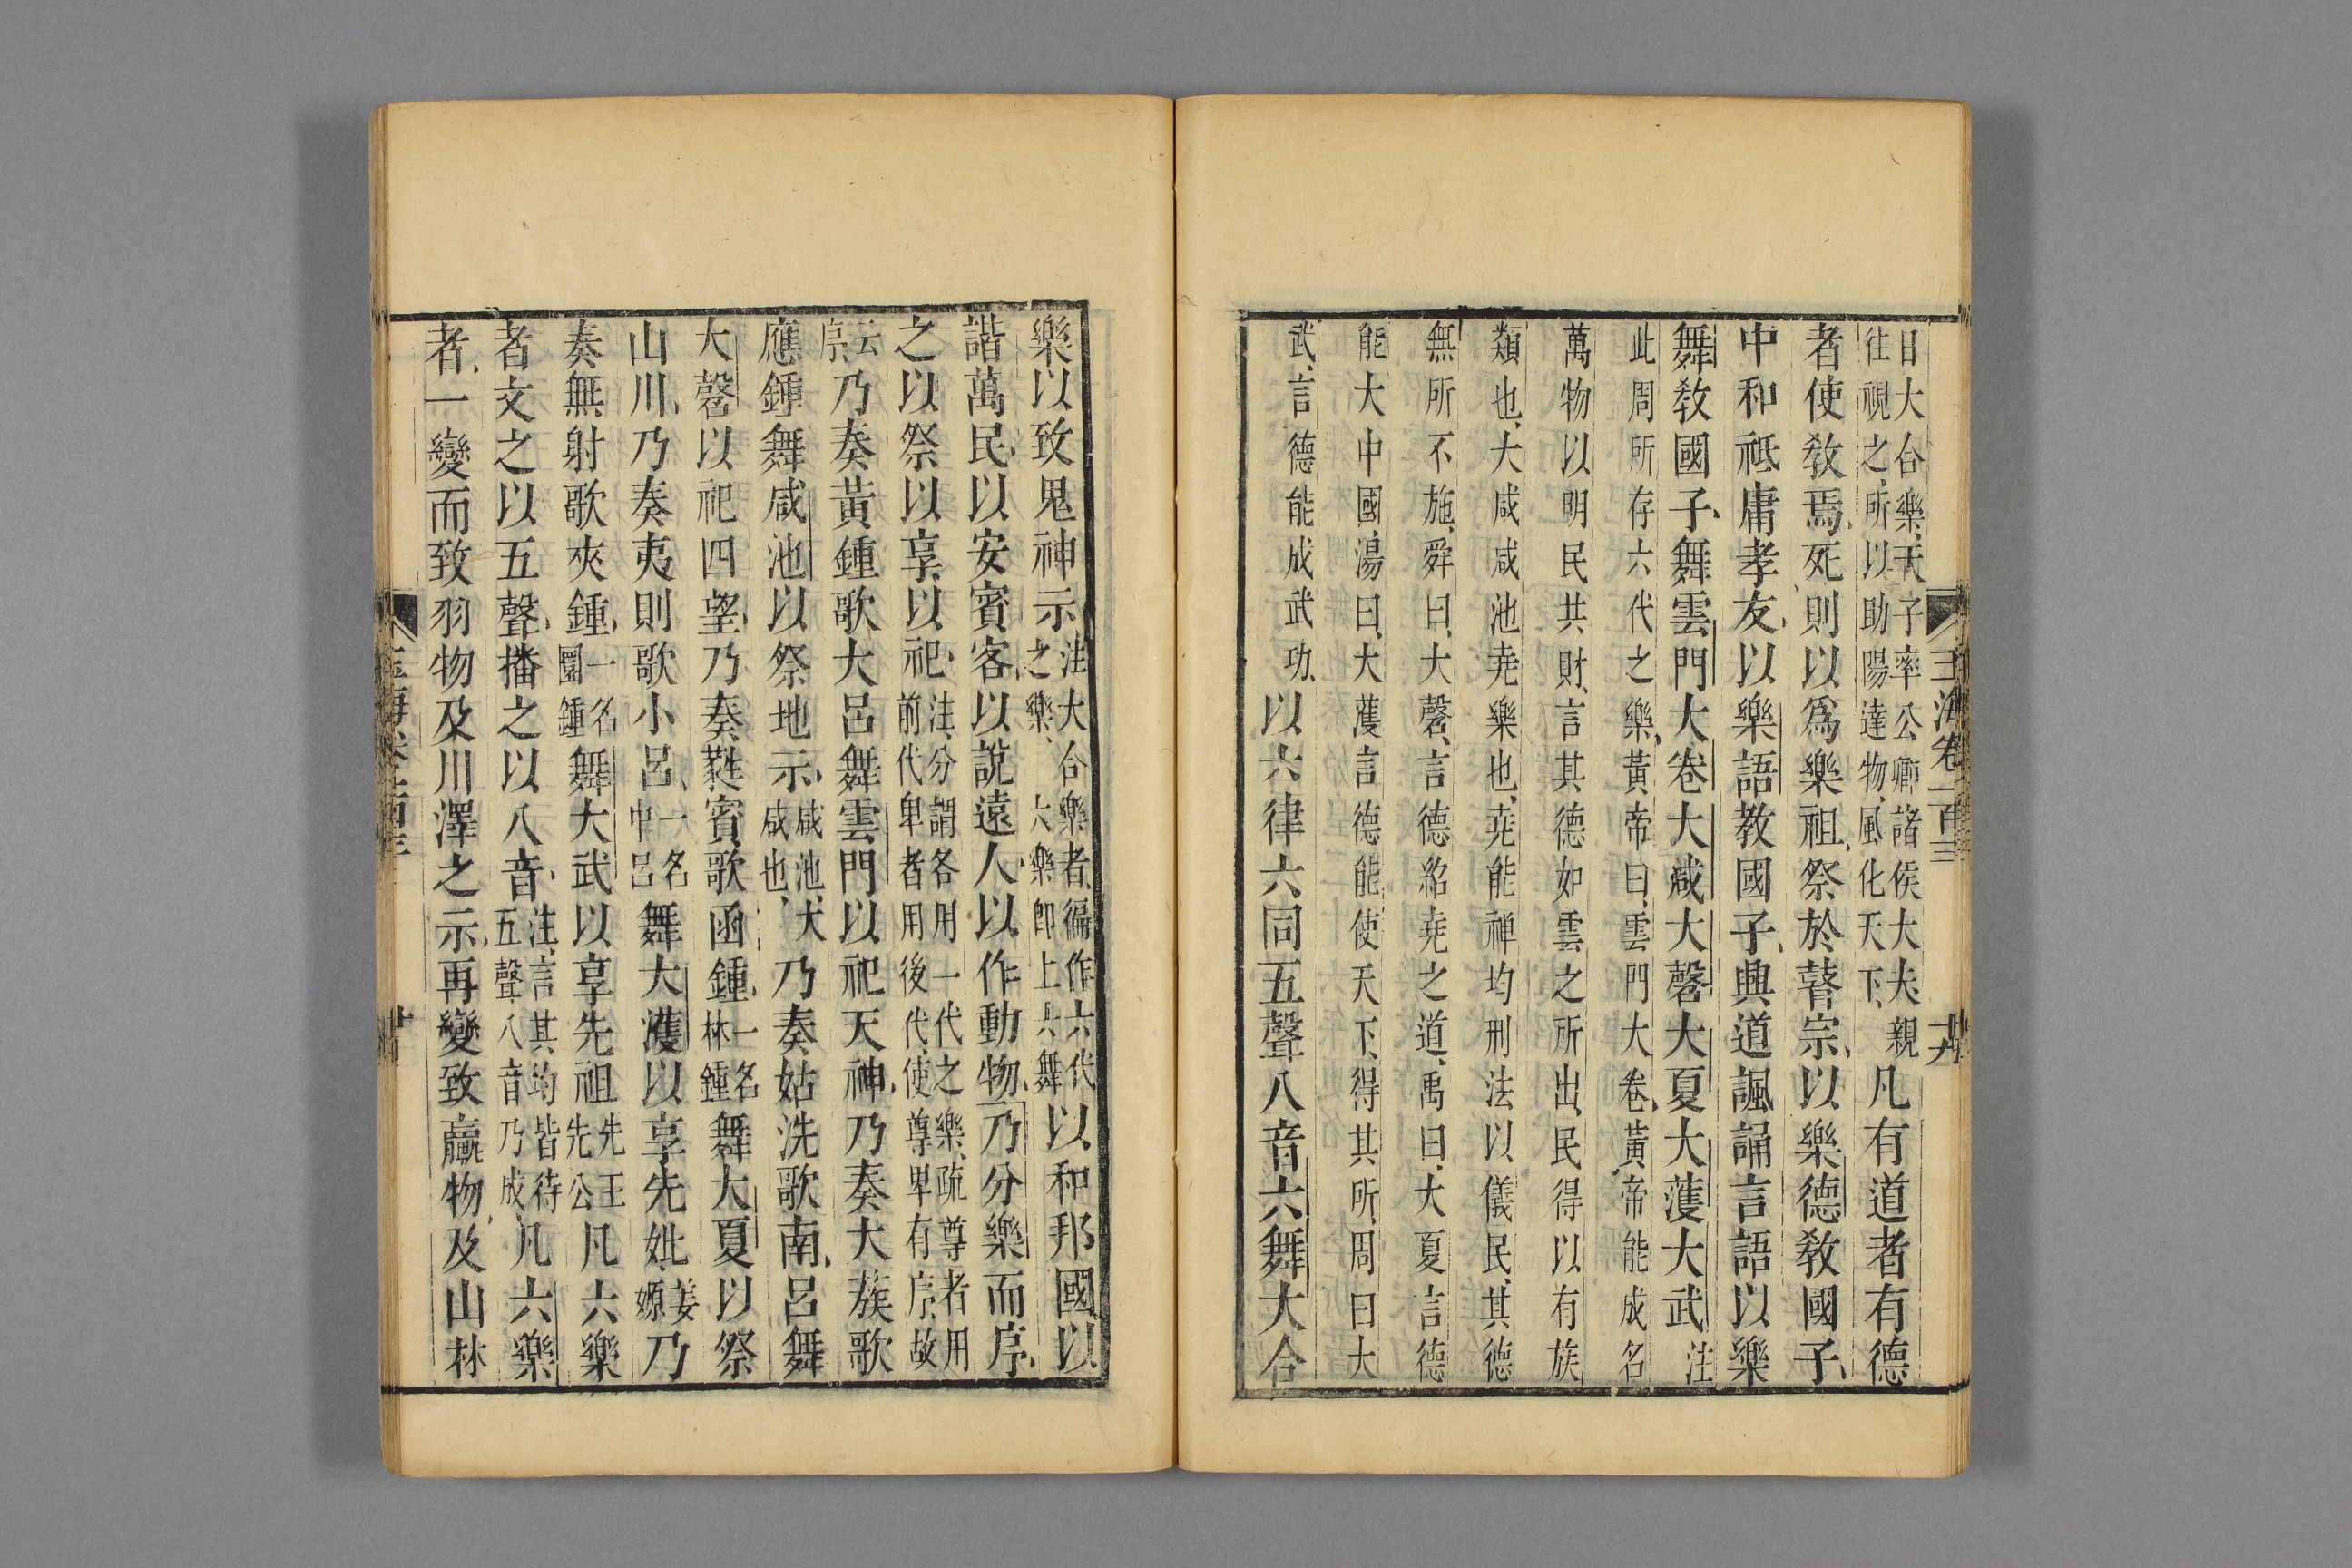 玉海卷一百三
日大合樂天子率公卿諸侯大夫親往視之所以助陽達物風化天下凡有道者有德
者使敎焉死則以爲樂祖祭於瞽宗以樂德敎國子
中和祗庸孝友以樂語教國子興道諷誦言語以樂
舞敎國子舞雲門大卷大咸大磬大夏大濩大武注
此周所存六代之樂黃帝曰雲門大卷黃帝能成名
萬物以明民共財言其德如雲之所出民得以有族
類也大咸咸池堯樂也堯能禅均刑法以儀民其德
無所不施舜曰大磬言德紹堯之道禹曰大夏言德
能大中國湯曰大濩言德能使天下得其所周曰大
武言德能成武功以六律六同五聲八音六舞大合
樂以致鬼神示注大合樂者徧作六代之樂大樂即上六舞以和邦國以
諧萬民以安賓客以說遠人以作動物乃分樂而序
之以祭以享以祀注分謂各用一代之樂疏尊者用前代卑者用後代使尊卑有序故
云序乃奏黃鍾歌大呂舞雲門以祀天神乃奏大蔟歌
應鍾舞咸池以祭地示咸池大咸也乃奏姑洗歌南呂舞
大磬以祀四望乃奏蕤賓歌函鍾一名林鍾舞大夏以祭
山川乃奏夷則歌小呂一名中呂舞大濩以享先妣姜嫄乃
奏無射歌夾鍾一名圜鍾舞大武以享先祖先王先公凡六樂
者文之以五聲播之以八音注言其均皆待五聲八音乃成凡六樂
者一變而致羽物及川澤之示再變致臝物及山林